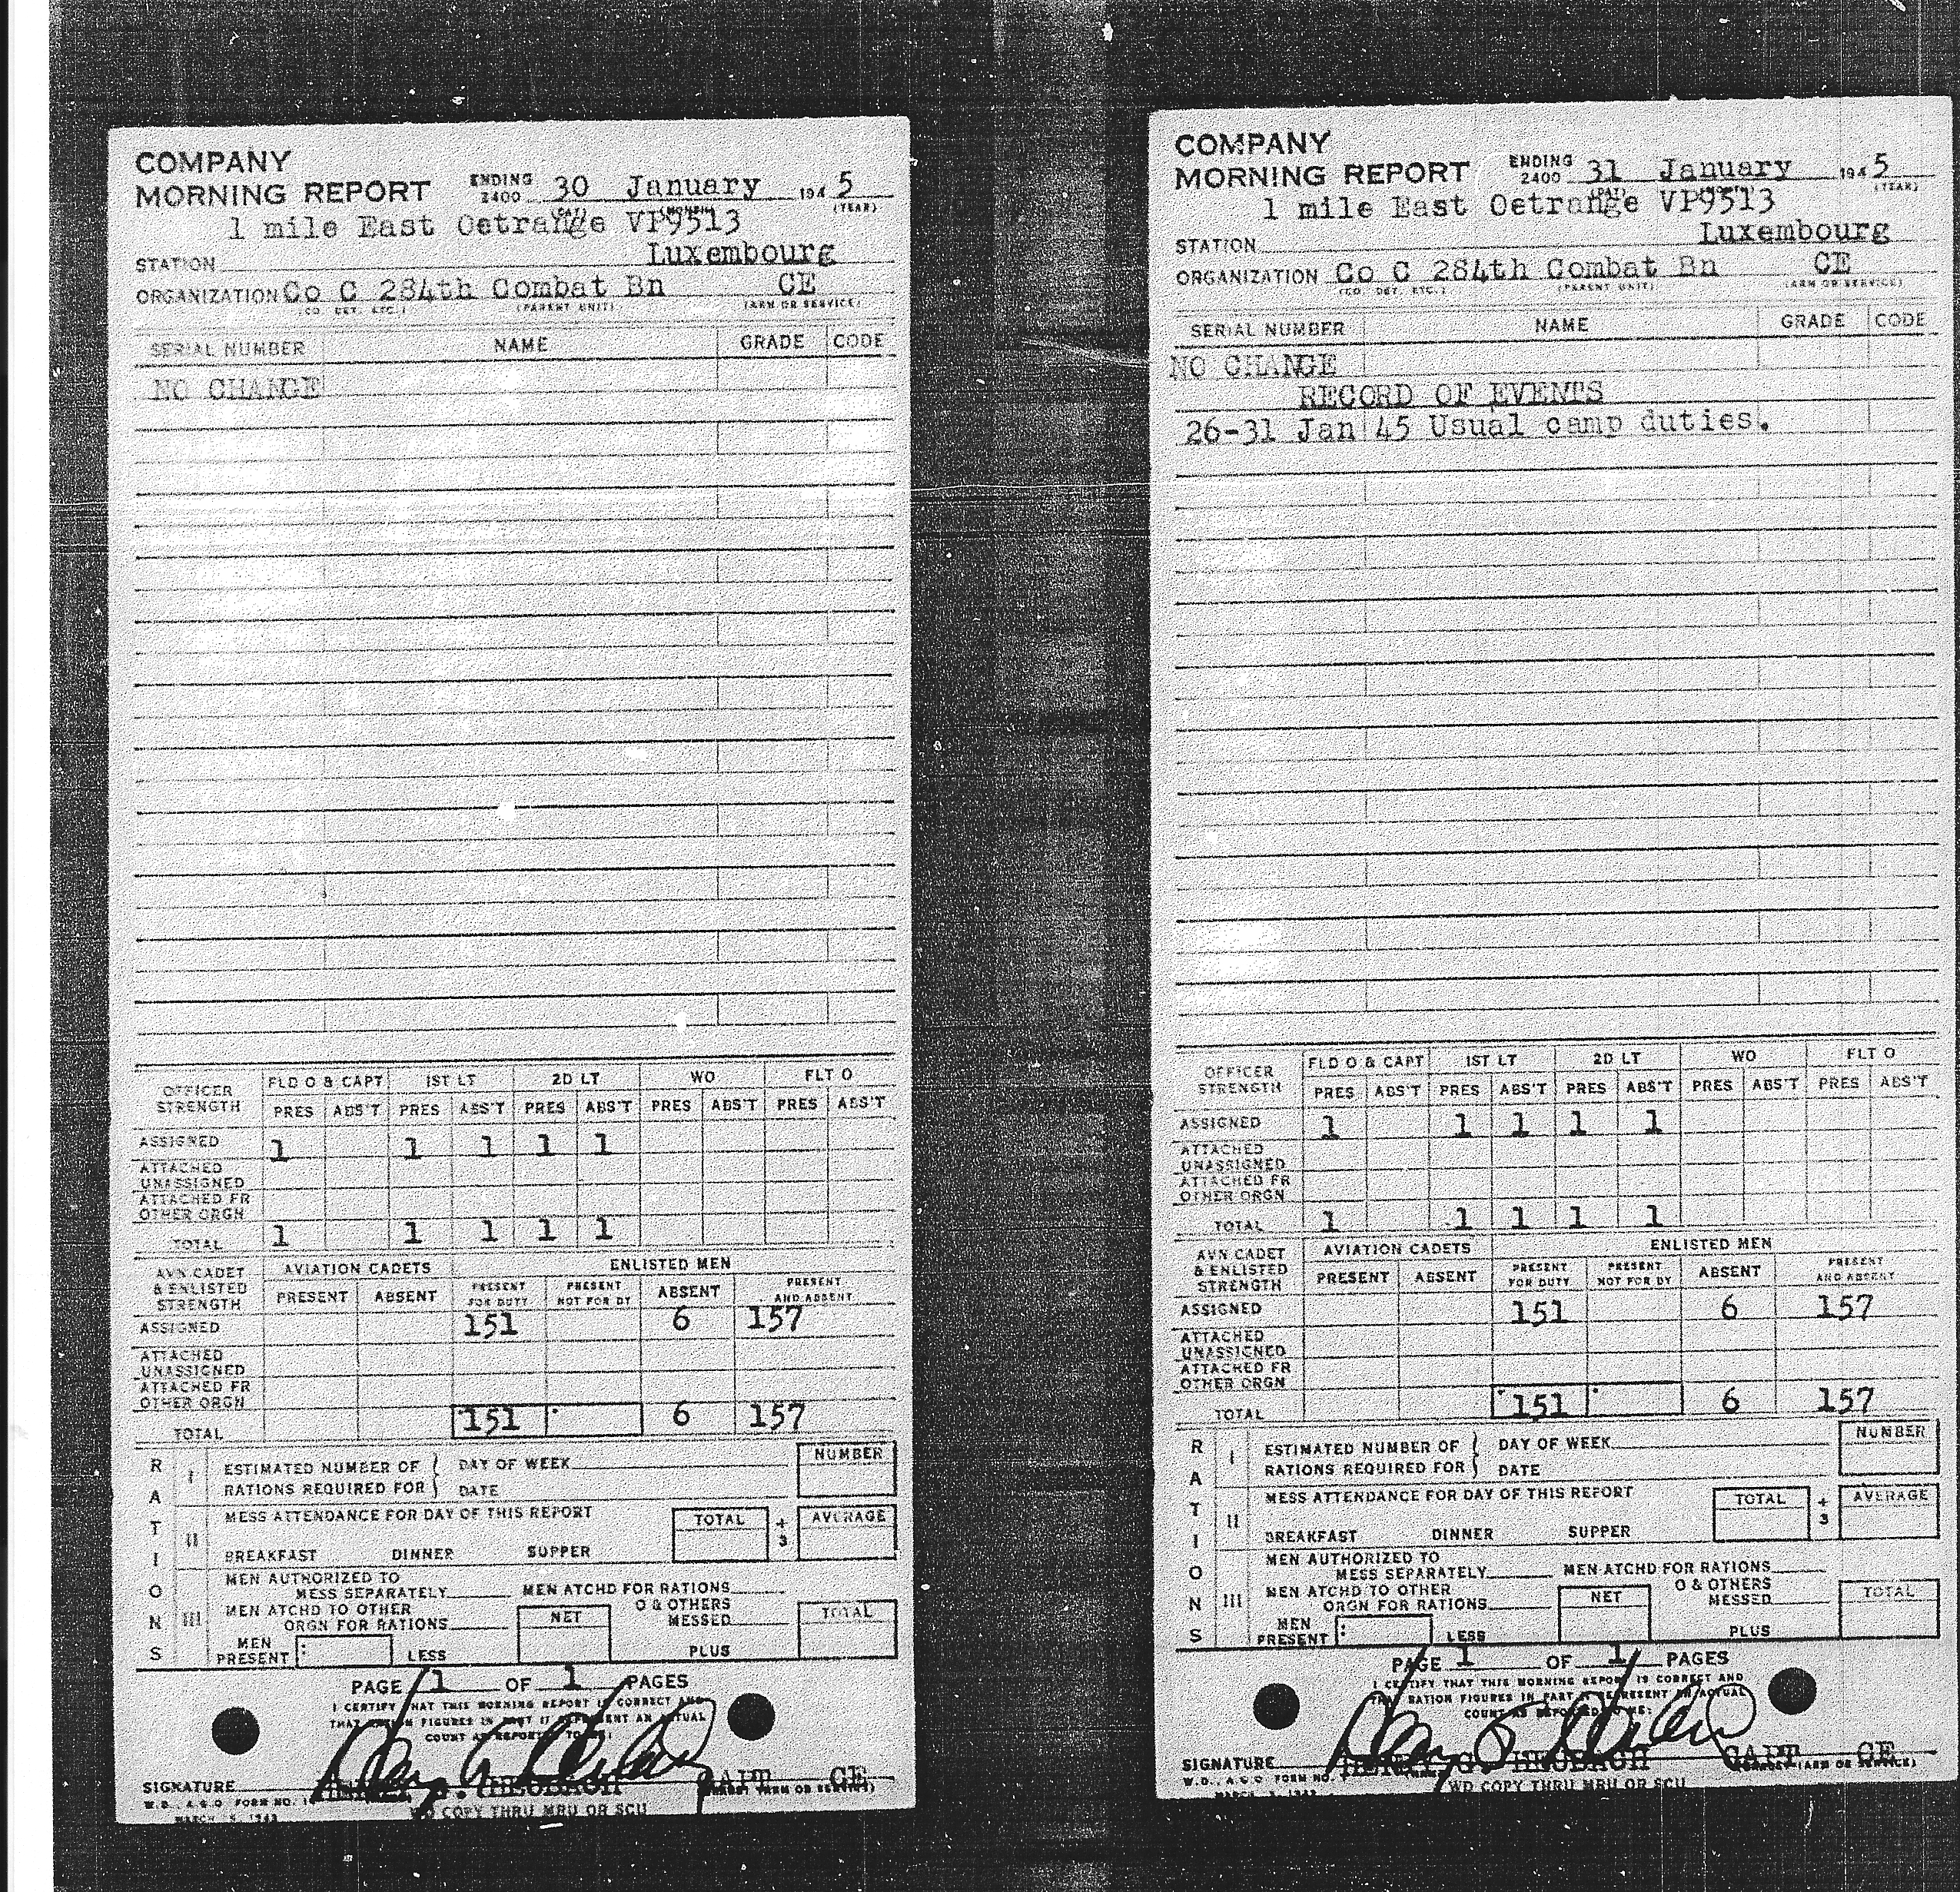 COMPANY
MORNING REPORT ENDING 2400 30 January 1945
(DAY) (MONTH) (YEAR)
1 mile East Oetrange VP9513
STATION Luxembourg
ORGANIZATION Co C 284th Combat Bn CE
(CO. DET. ETC.) (PARENT UNIT) (ARM OR SERVICE)
SERIAL NUMBER NAME GRADE CODE
NO CHANGE
OFFICER STRENGTH FLD O & CAPT 1ST LT 2D LT WO FLT O
PRES ABS'T PRES ABS'T PRES ABS'T PRES ABS'T PRES ABS'T
ASSIGNED 1 1 1 1 1
ATTACHED UNASSIGNED
ATTACHED FR OTHER ORGN
TOTAL 1 1 1 1 1
AVN CADET & ENLISTED STRENGTH AVIATION CADETS ENLISTED MEN
PRESENT ABSENT PRESENT FOR DUTY PRESENT NOT FOR DY ABSENT PRESENT AND ABSENT
ASSIGNED 151 6 157
ATTACHED UNASSIGNED
ATTACHED FR OTHER ORGN
TOTAL 151 6 157
RATIONS
I ESTIMATED NUMBER OF RATIONS REQUIRED FOR DAY OF WEEK DATE NUMBER
II MESS ATTENDANCE FOR DAY OF THIS REPORT TOTAL ÷ 3 AVERAGE
BREAKFAST DINNER SUPPER
III MEN AUTHORIZED TO MESS SEPARATELY MEN ATCHD FOR RATIONS
MEN ATCHD TO OTHER ORGN FOR RATIONS NET O & OTHERS MESSED TOTAL
MEN PRESENT LESS PLUS
PAGE 1 OF 1 PAGES
I CERTIFY THAT THIS MORNING REPORT IS CORRECT AND
THAT RATION FIGURES IN PART II REPRESENT AN ACTUAL
COUNT AS REPORTED TO ME:
SIGNATURE CAPT CE
W.D., A.G.O. FORM NO. 1
MARCH 5, 1943
WD COPY THRU MRU OR SCU
COMPANY
MORNING REPORT ENDING 2400 31 January 1945
(DAY) (MONTH) (YEAR)
1 mile East Oetrange VP9513
STATION Luxembourg
ORGANIZATION Co C 284th Combat Bn CE
(CO. DET. ETC.) (PARENT UNIT) (ARM OR SERVICE)
SERIAL NUMBER NAME GRADE CODE
NO CHANGE
RECORD OF EVENTS
26-31 Jan 45 Usual camp duties.
OFFICER STRENGTH FLD O & CAPT 1ST LT 2D LT WO FLT O
PRES ABS'T PRES ABS'T PRES ABS'T PRES ABS'T PRES ABS'T
ASSIGNED 1 1 1 1 1
ATTACHED UNASSIGNED
ATTACHED FR OTHER ORGN
TOTAL 1 1 1 1 1
AVN CADET & ENLISTED STRENGTH AVIATION CADETS ENLISTED MEN
PRESENT ABSENT PRESENT FOR DUTY PRESENT NOT FOR DY ABSENT PRESENT AND ABSENT
ASSIGNED 151 6 157
ATTACHED UNASSIGNED
ATTACHED FR OTHER ORGN
TOTAL 151 6 157
RATIONS
I ESTIMATED NUMBER OF RATIONS REQUIRED FOR DAY OF WEEK DATE NUMBER
II MESS ATTENDANCE FOR DAY OF THIS REPORT TOTAL ÷ 3 AVERAGE
BREAKFAST DINNER SUPPER
III MEN AUTHORIZED TO MESS SEPARATELY MEN ATCHD FOR RATIONS
MEN ATCHD TO OTHER ORGN FOR RATIONS NET O & OTHERS MESSED TOTAL
MEN PRESENT LESS PLUS
PAGE 1 OF 1 PAGES
I CERTIFY THAT THIS MORNING REPORT IS CORRECT AND
THAT RATION FIGURES IN PART II REPRESENT AN ACTUAL
COUNT AS REPORTED TO ME:
SIGNATURE HENRY G CAPT CE
W.D., A.G.O. FORM NO. 1
MARCH 5, 1943
WD COPY THRU MRU OR SCU